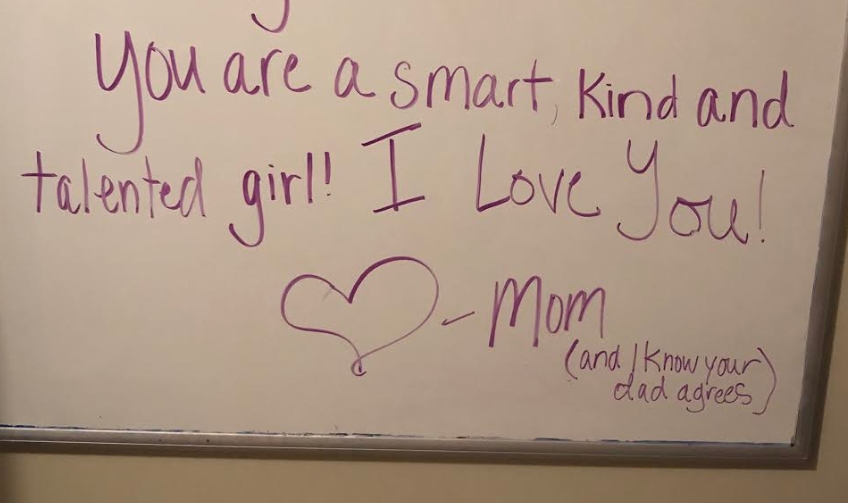 You are a smart, Kind and
talented girl!! I Love You!
- Mom
(and I know your
dad agrees)